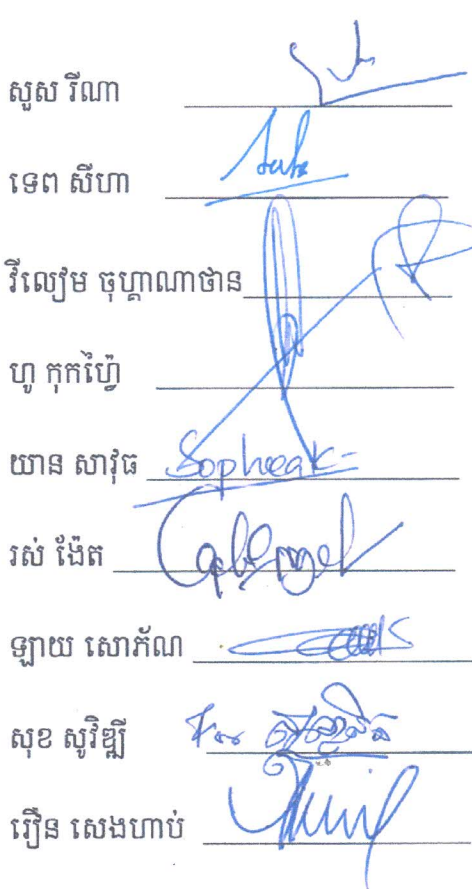 សួស រីណា
ទេព សីហា
វីល្យេម ចុហ្គាណាថាន
ហូ កុកហ្វៃ
យាន សាវុធ Sopheak
រស់ ង៉ែត
ឡាយ សោភ័ណ
សុខ សូវិឌ្ឍី
រឿន សេងហាប់